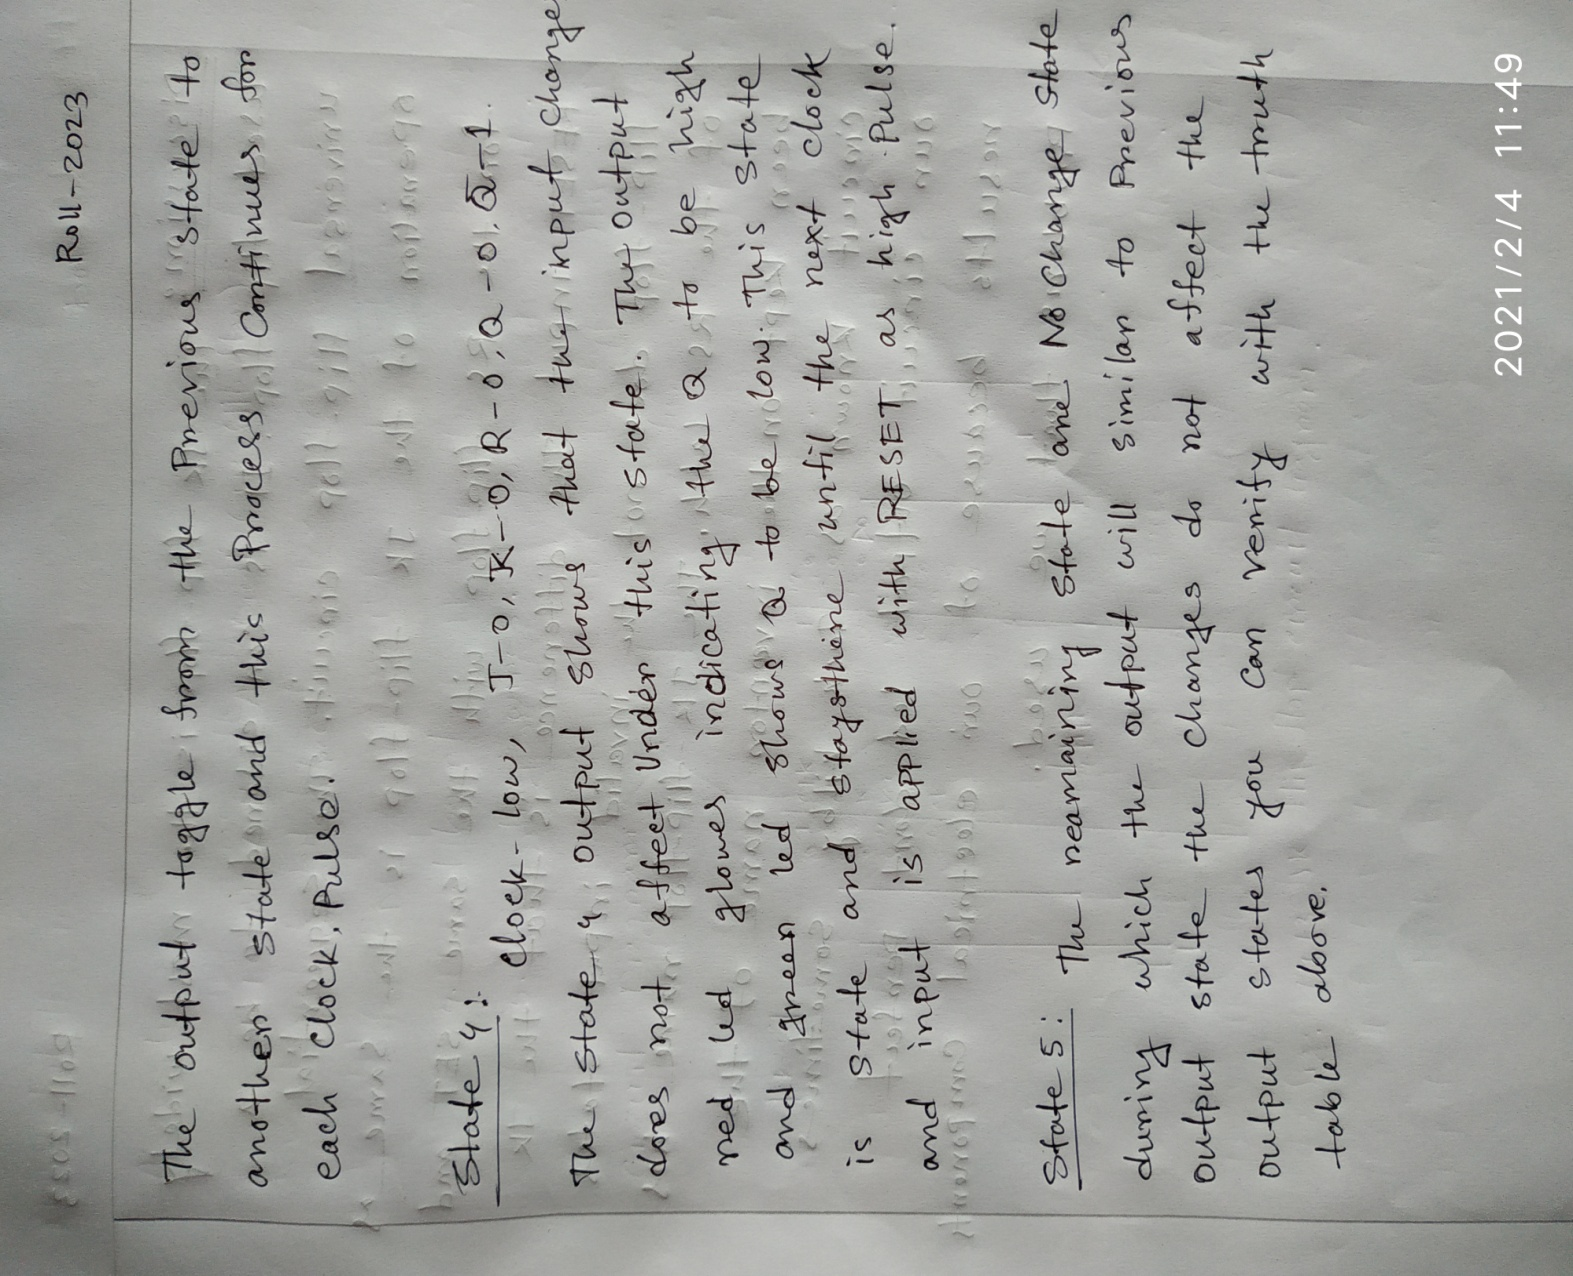 Roll-2023
The output toggle from the Previous state to
another state and this Process Continues for
each clock Pulse.
State 4:- Clock-low, J-0, K-0, R-0, Q-0, Q̅-1.
The state 4 output shows that the input change
does not affect Under this state. The output
red led glowes indicating the Q to be high
and green led shows Q to be low. This state
is state and staysthere until the next clock
and input is applied with RESET as high Pulse.
State 5: The reamaining state are No Change state
during which the output will similar to Previous
output state the changes do not affect the
output states you can verify with the truth
table above.
2021/2/4 11:49